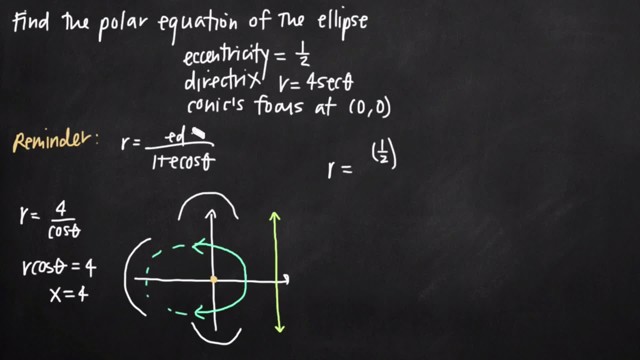 Find the polar equation of the ellipse
eccentricity = 1/2
directrix r = 4secθ
conic's focus at (0,0)
Reminder: r = ed/(1+ecosθ)
r = (1/2)
r = 4/cosθ
rcosθ = 4
x = 4